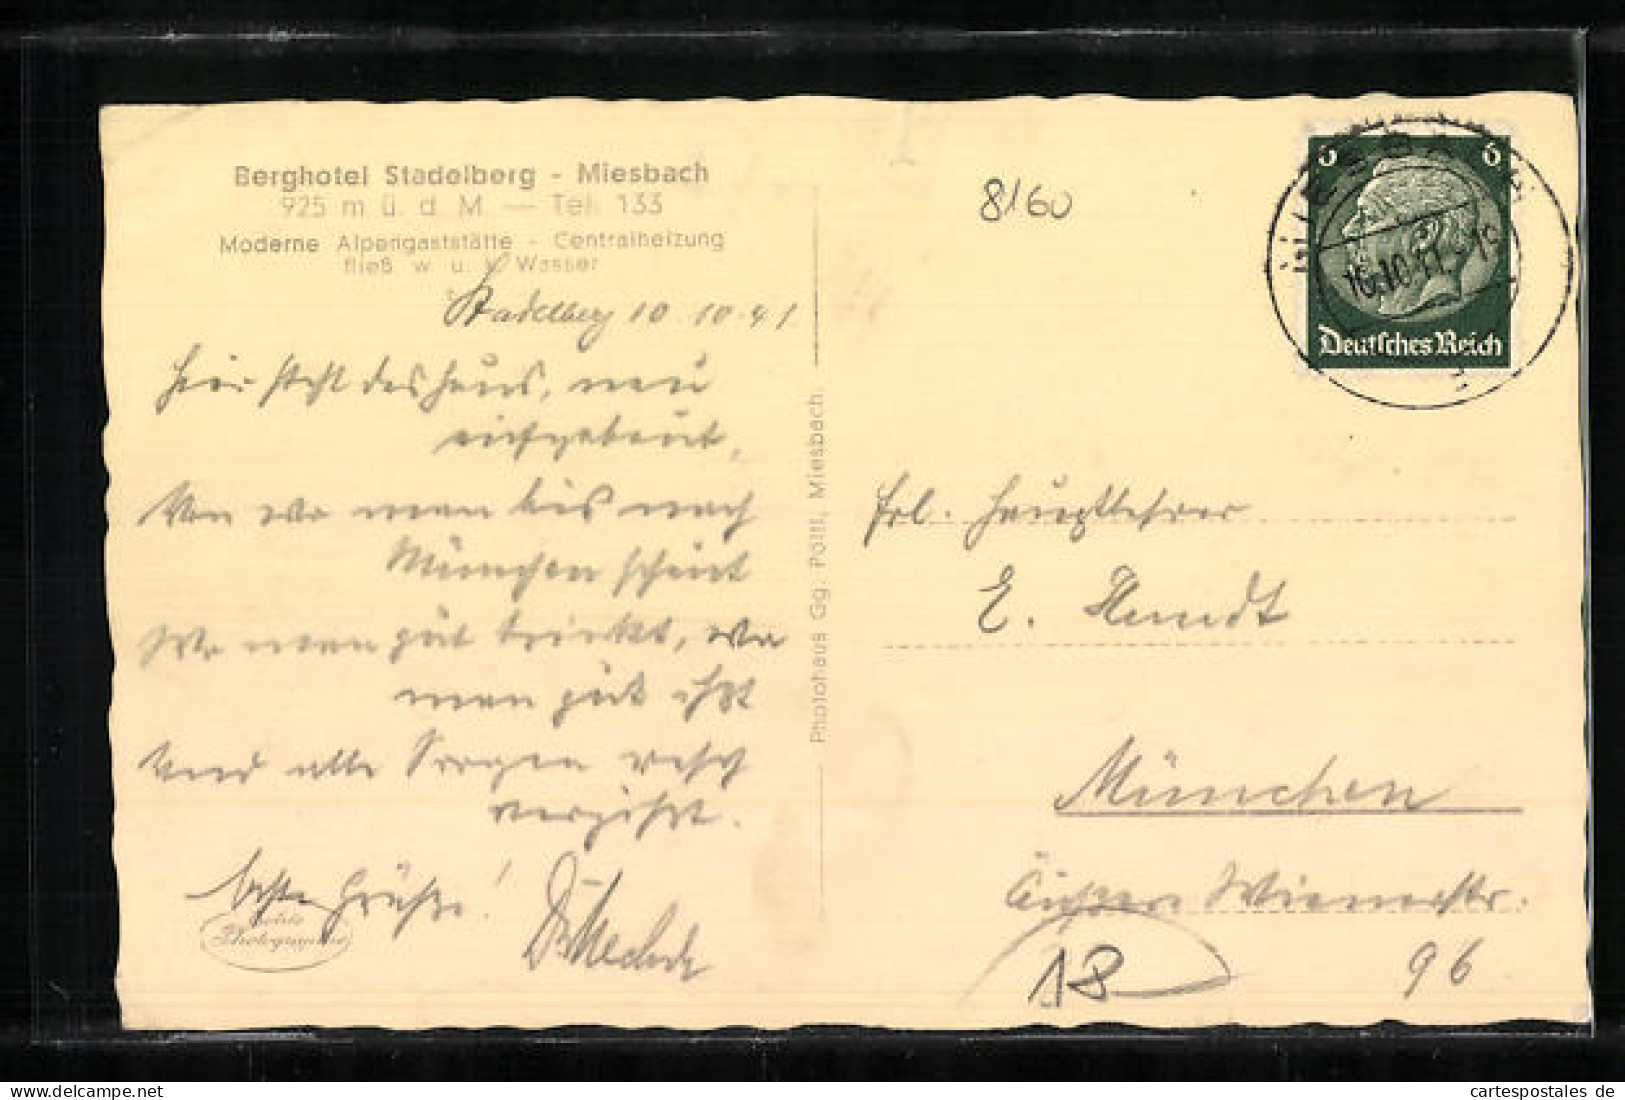 Berghotel Stadelberg - Miesbach
925 m ü. d. M. — Tel. 133
Moderne Alpengaststätte - Centralheizung
fließ. w. u. k. Wasser
Stadelberg 10.10.41
Hier steht das Haus, neu
aufgebaut,
Von wo man bis nach
München schaut
Wo man gut trinkt, wo
man gut ißt
Und alle Sorgen rasch
vergißt.
Beste Grüße!
Echte
Photographie
Photohaus Gg. Pöltl, Miesbach
8160
6 6
MIESBACH
10.10.41-19
Deutsches Reich
Frl. Hauptlehrer
E.
München
Äußere Wienerstr.
96
18
cartespostales de